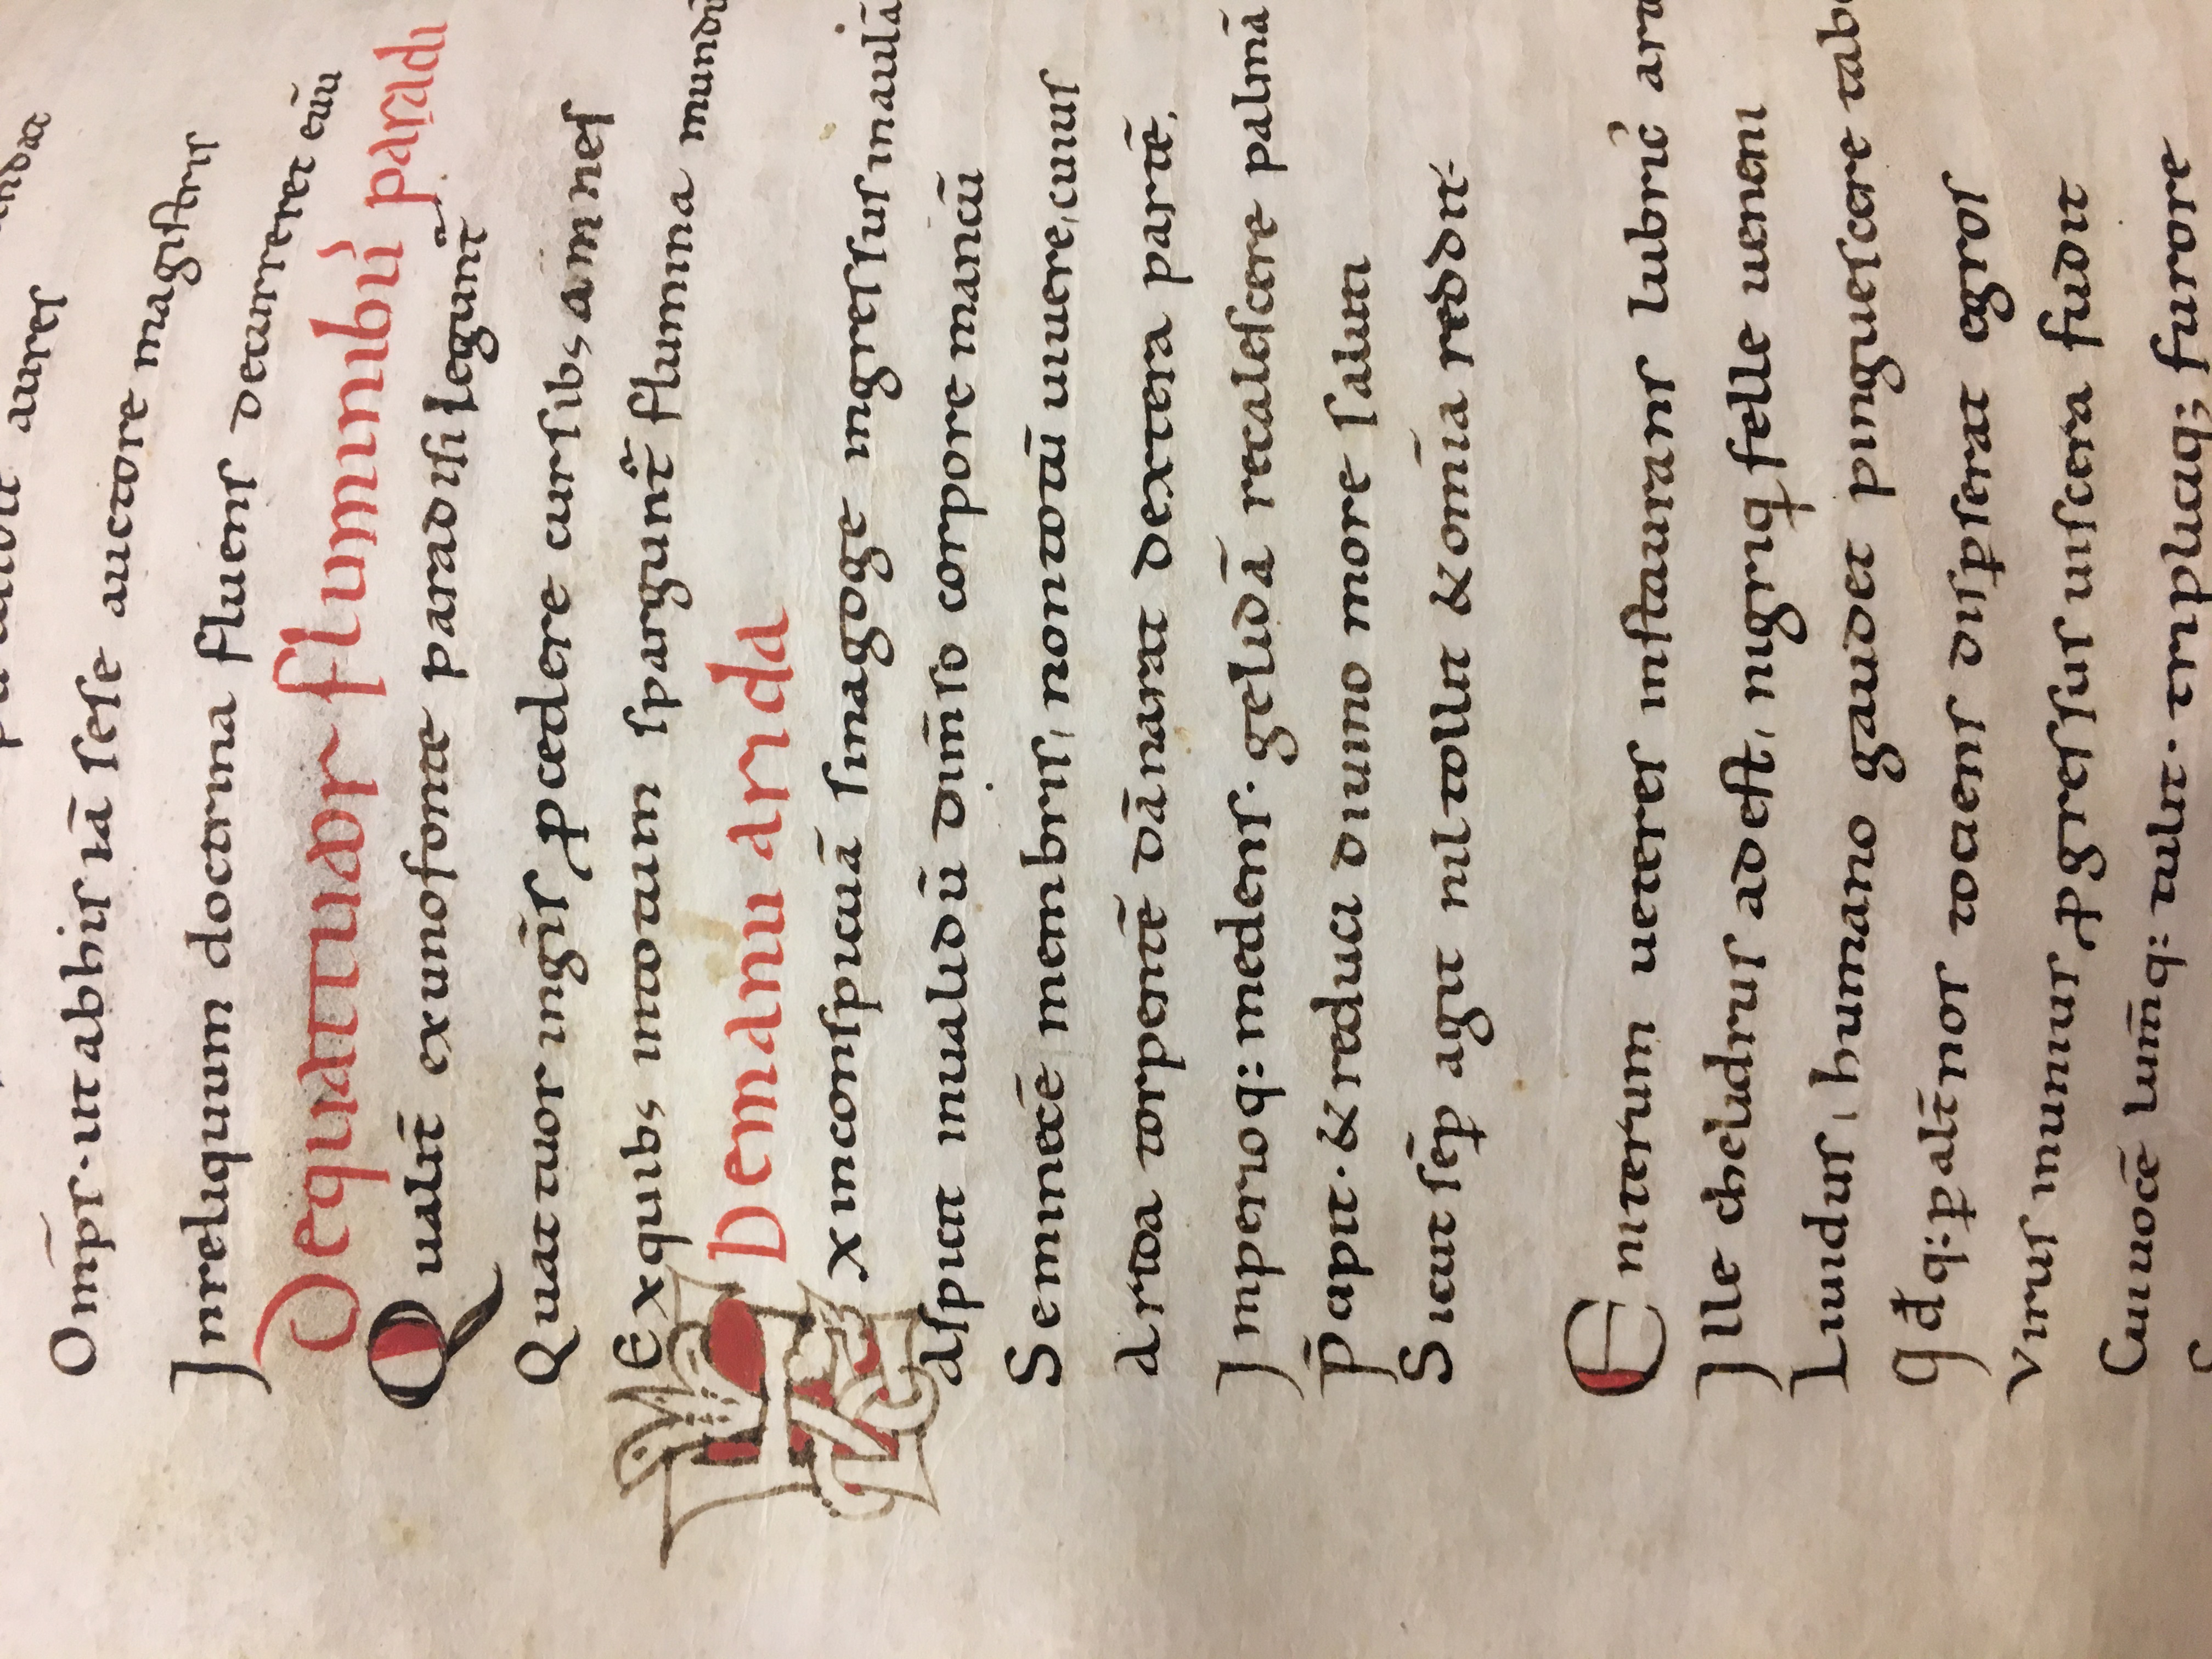 aures
Om̄pr̄· ut abbis uā sese auctore magistris
Inreliquum doctrina fluens decurreret eūū
Dequattuor fluminibus paradi
Qualit̄ exunofonte paradisi legunt̄
Quattuor ingis̄ ꝓcedere cursibꝫ amnes
Exquibꝫ intotum spargunt̄ flumina mundū
Demanu arida
Ex inconspicuā sinagoge ingressus inaulā
Aspicit inualidū dim̄iso corpore mancū
Seminecē membris, nontotū uiuere, cuius
Arida torpentē dānarat dextera partē,
Imperioq: medens· gelidā recalescere palmā
P̄apit·& reduci diuino more saluti
Sicut sēꝑ agit nil tollit & om̄ia reddit·
Eniterum ueteres instaurans lubric'
Ille chelidrus adest, nigriq felle ueneni
Liuidus, humano gaudet pinguescere tabo
Qđq: ꝑ alīt̄nos tacens disꝑserat ęgros
Virus inunius ꝓgressus uiscera fudit
Cuiuocē lum̄q: tulit· triplicaq; furore